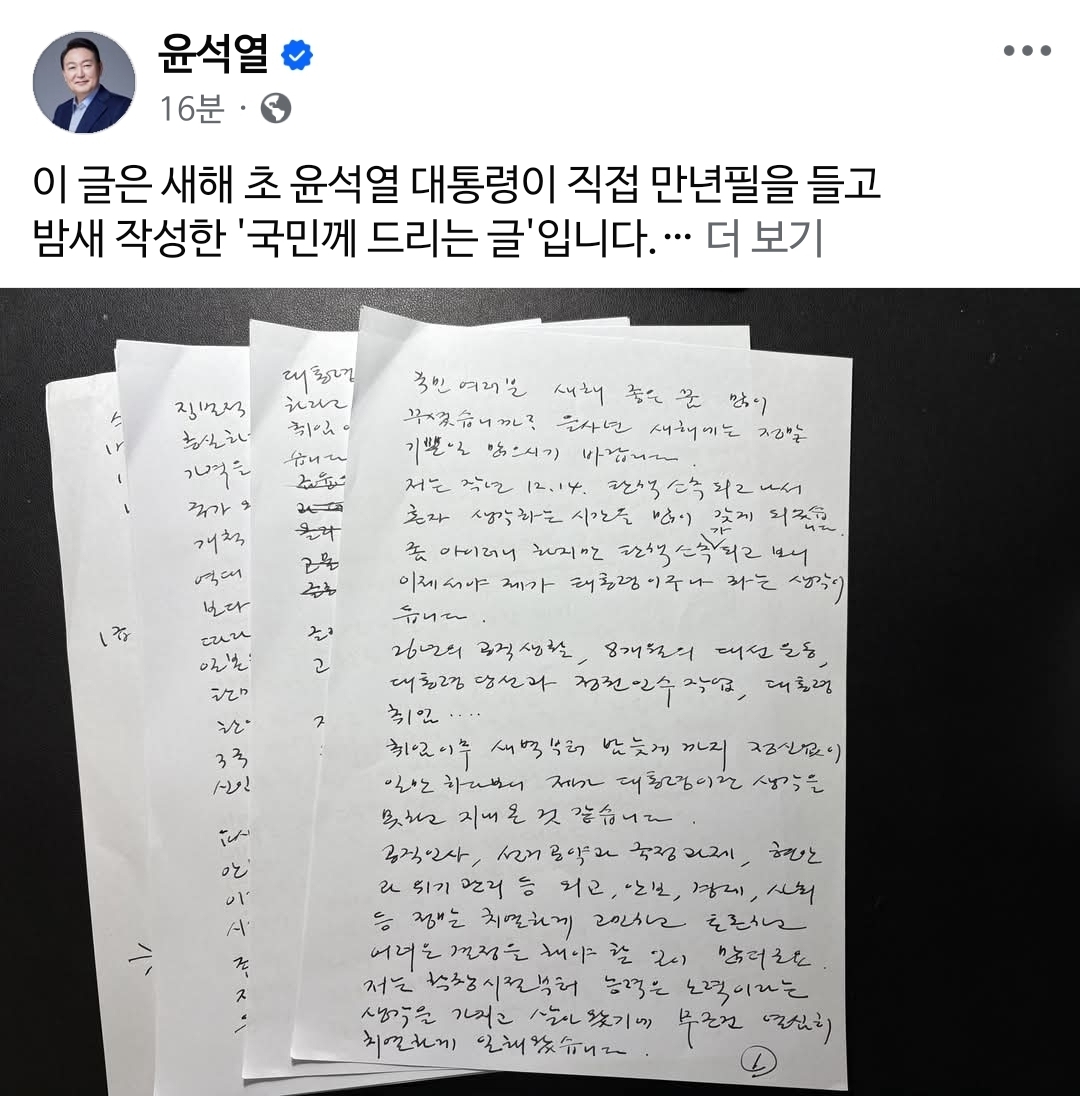 윤석열
16분 ·
이 글은 새해 초 윤석열 대통령이 직접 만년필을 들고
밤새 작성한 '국민께 드리는 글'입니다.… 더 보기
국민 여러분 새해 좋은 꿈 많이
꾸셨습니까? 을사년 새해에는 정말
기쁠일 많으시기 바랍니다.
저는 작년 12.14. 탄핵 소추 되고 나서
혼자 생각하는 시간을 많이 갖게 되었습니다.
좀 아이러니 하지만 탄핵 소추가 되고 보니
이제서야 제가 대통령이구나 라는 생각이
듭니다.
26년의 공직생활, 8개월의 대선 운동,
대통령 당선과 정권 인수 작업, 대통령
취임 ....
취임이후 새벽부터 밤늦게 까지 정신없이
일만 하다보니 제가 대통령이란 생각을
못하고 지내 온 것 같습니다.
공직인사, 선거 공약과 국정과제, 현안
과 위기 관리 등 외교, 안보, 경제, 사회
등 정말 치열하게 고민하고 토론하고
어려운 결정을 해야 할 일이 많더군요.
저는 학창시절부터 능력은 노력이라는
생각을 가지고 살아 왔기에 무조건 열심히
치열하게 일해왔습니다.
1
대통령
하라고
취임
습니다
고
직무
충실하
가격을
국가
개척
역대
보다
따라
일본
한미
3국